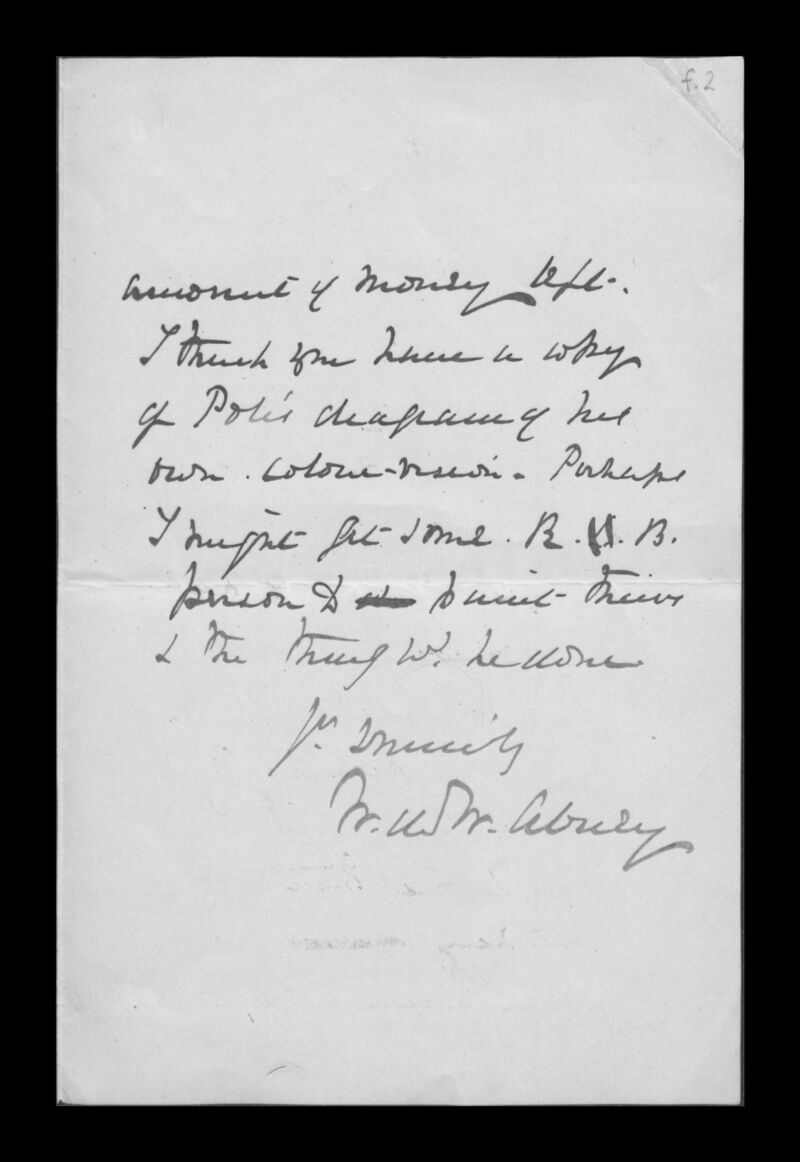 f.2
amount of money left.
I think you have a copy
of Pole's diagram of his
own colour-vision. Perhaps
I might get some R. B.
person to submit theirs
& the thing wd. be done
Yrs sincerely
W. de W. Abney